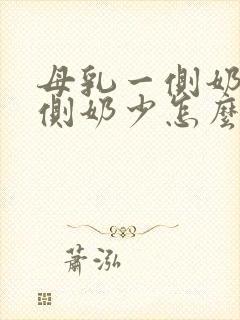 母乳一側奶
側奶少怎麼
蕭泓